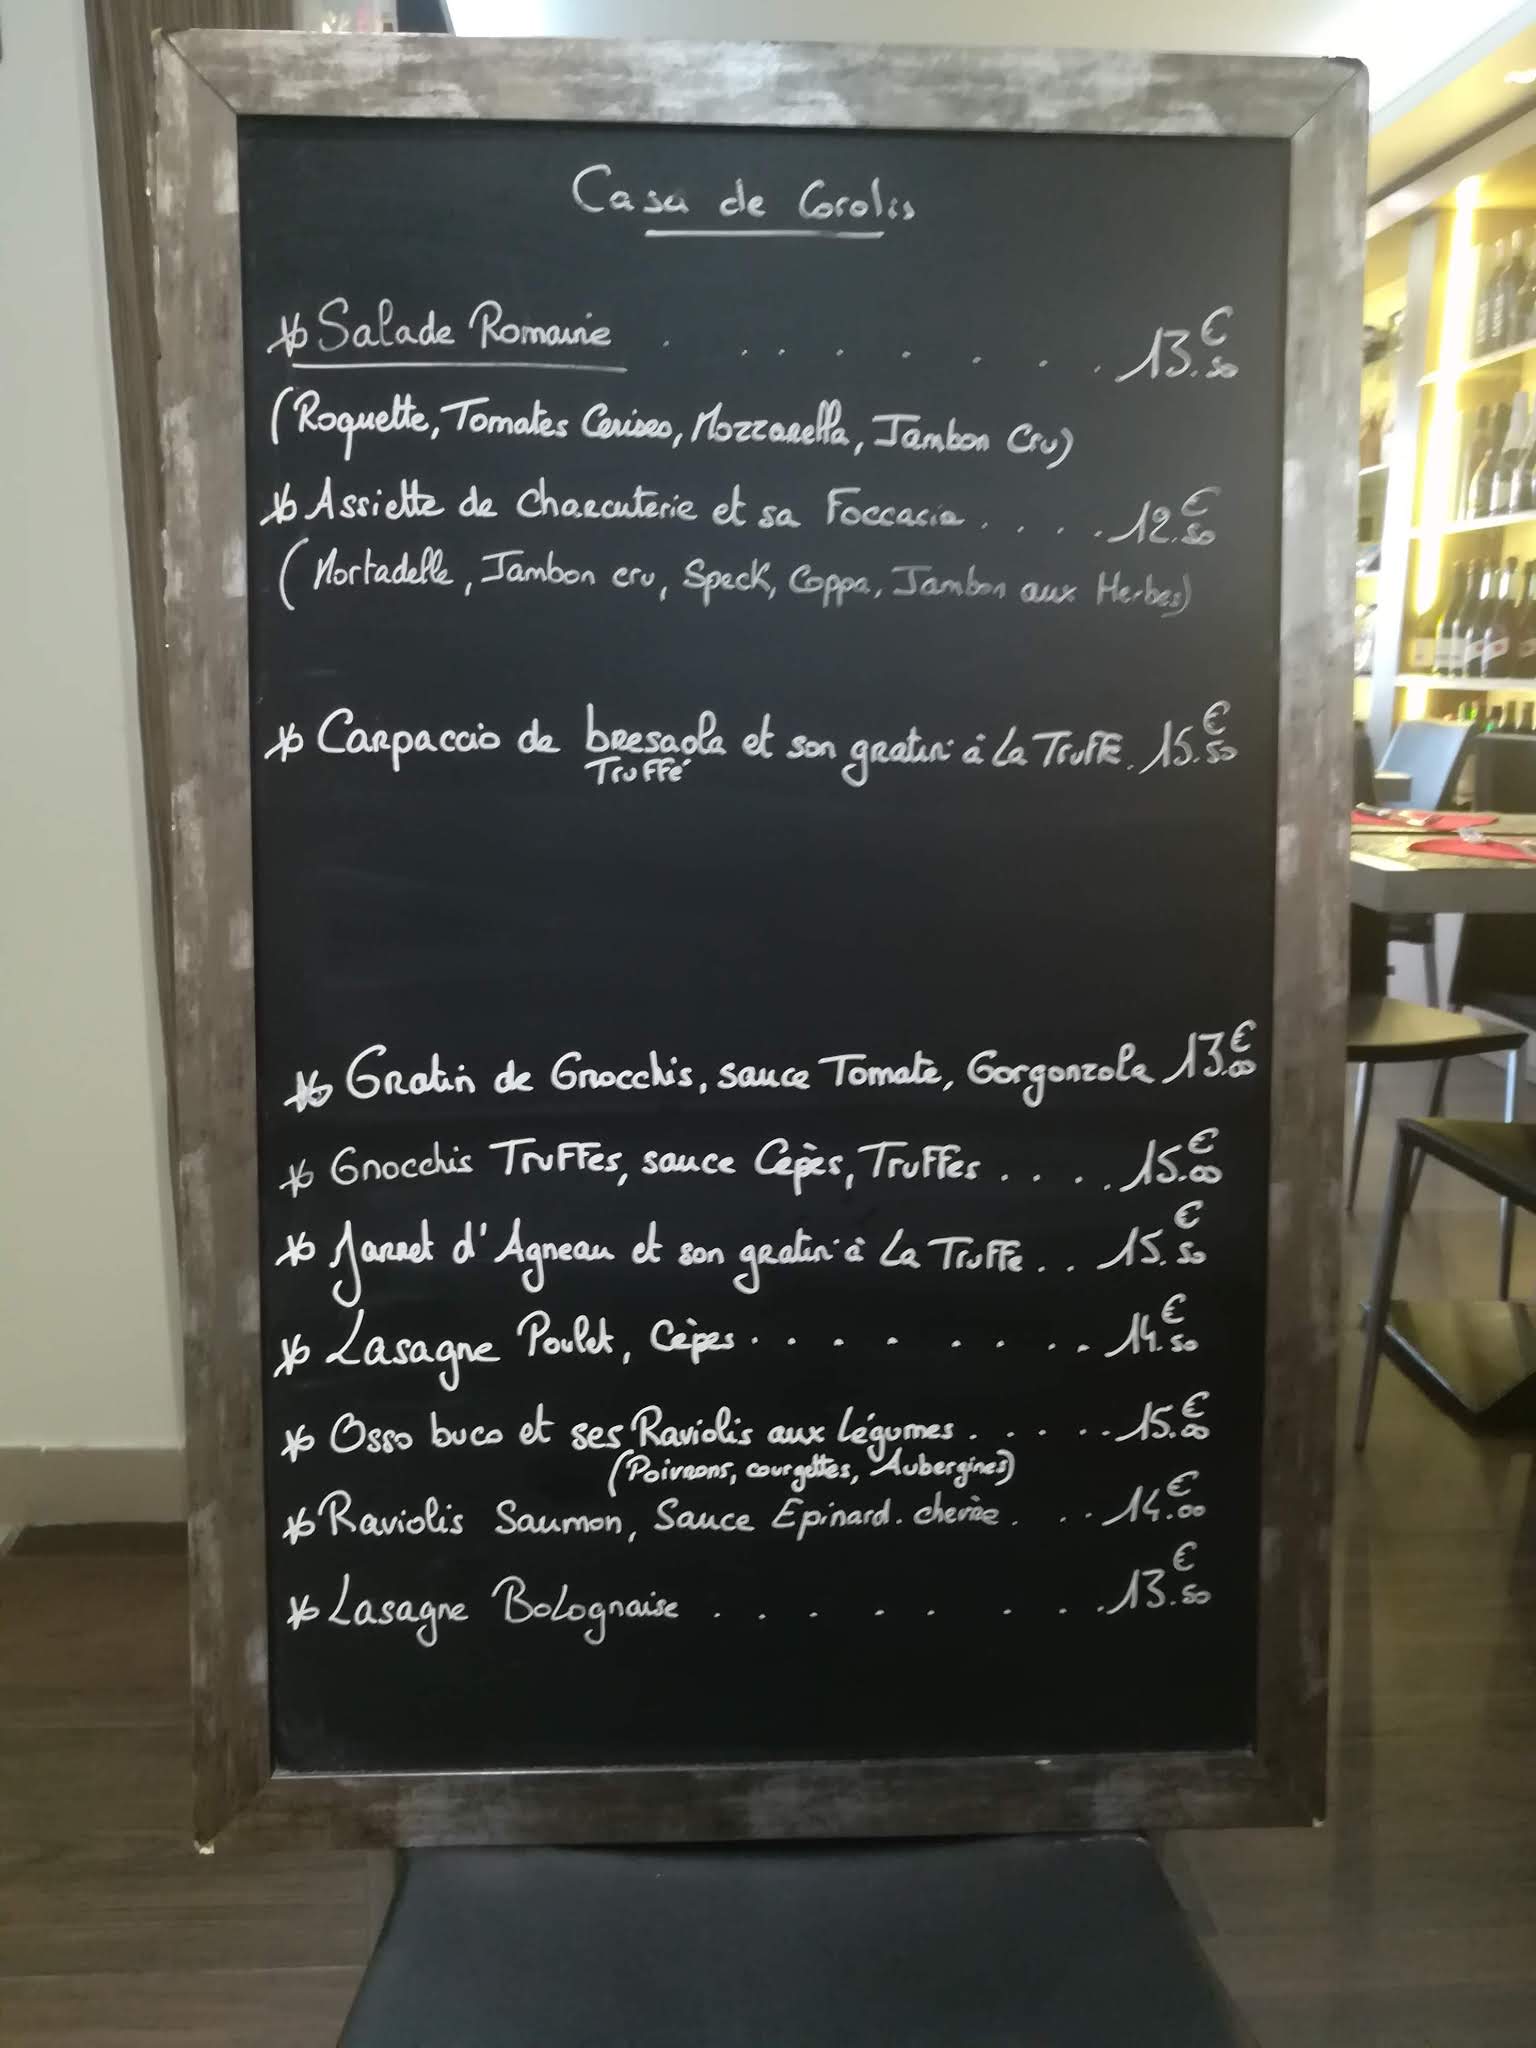 Casa de Corolis
Salade Romaine . . . . . . . . 13.50€
(Roquette, Tomates Cerises, Mozzarella, Jambon Cru)
Assiette de charcuterie et sa Foccacia . . . . 12.50€
(Mortadelle, Jambon cru, Speck, Coppa, Jambon aux Herbes)
Carpaccio de bresaola et son gratin à La Truffe. 15.50€
Truffé
Gratin de Gnocchis, sauce Tomate, Gorgonzola 13.00€
Gnocchis Truffes, sauce Cèpes, Truffes . . . . 15.00€
Jarret d'Agneau et son gratin à La Truffe . . 15.50€
Lasagne Poulet, Cèpes . . . . . . . . 14.50€
Osso buco et ses Raviolis aux Légumes . . . . . 15.00€
(Poivrons, courgettes, Aubergines)
Raviolis Saumon, Sauce Epinard. chèvre . . . . 14.00€
Lasagne Bolognaise . . . . . . . . 13.50€